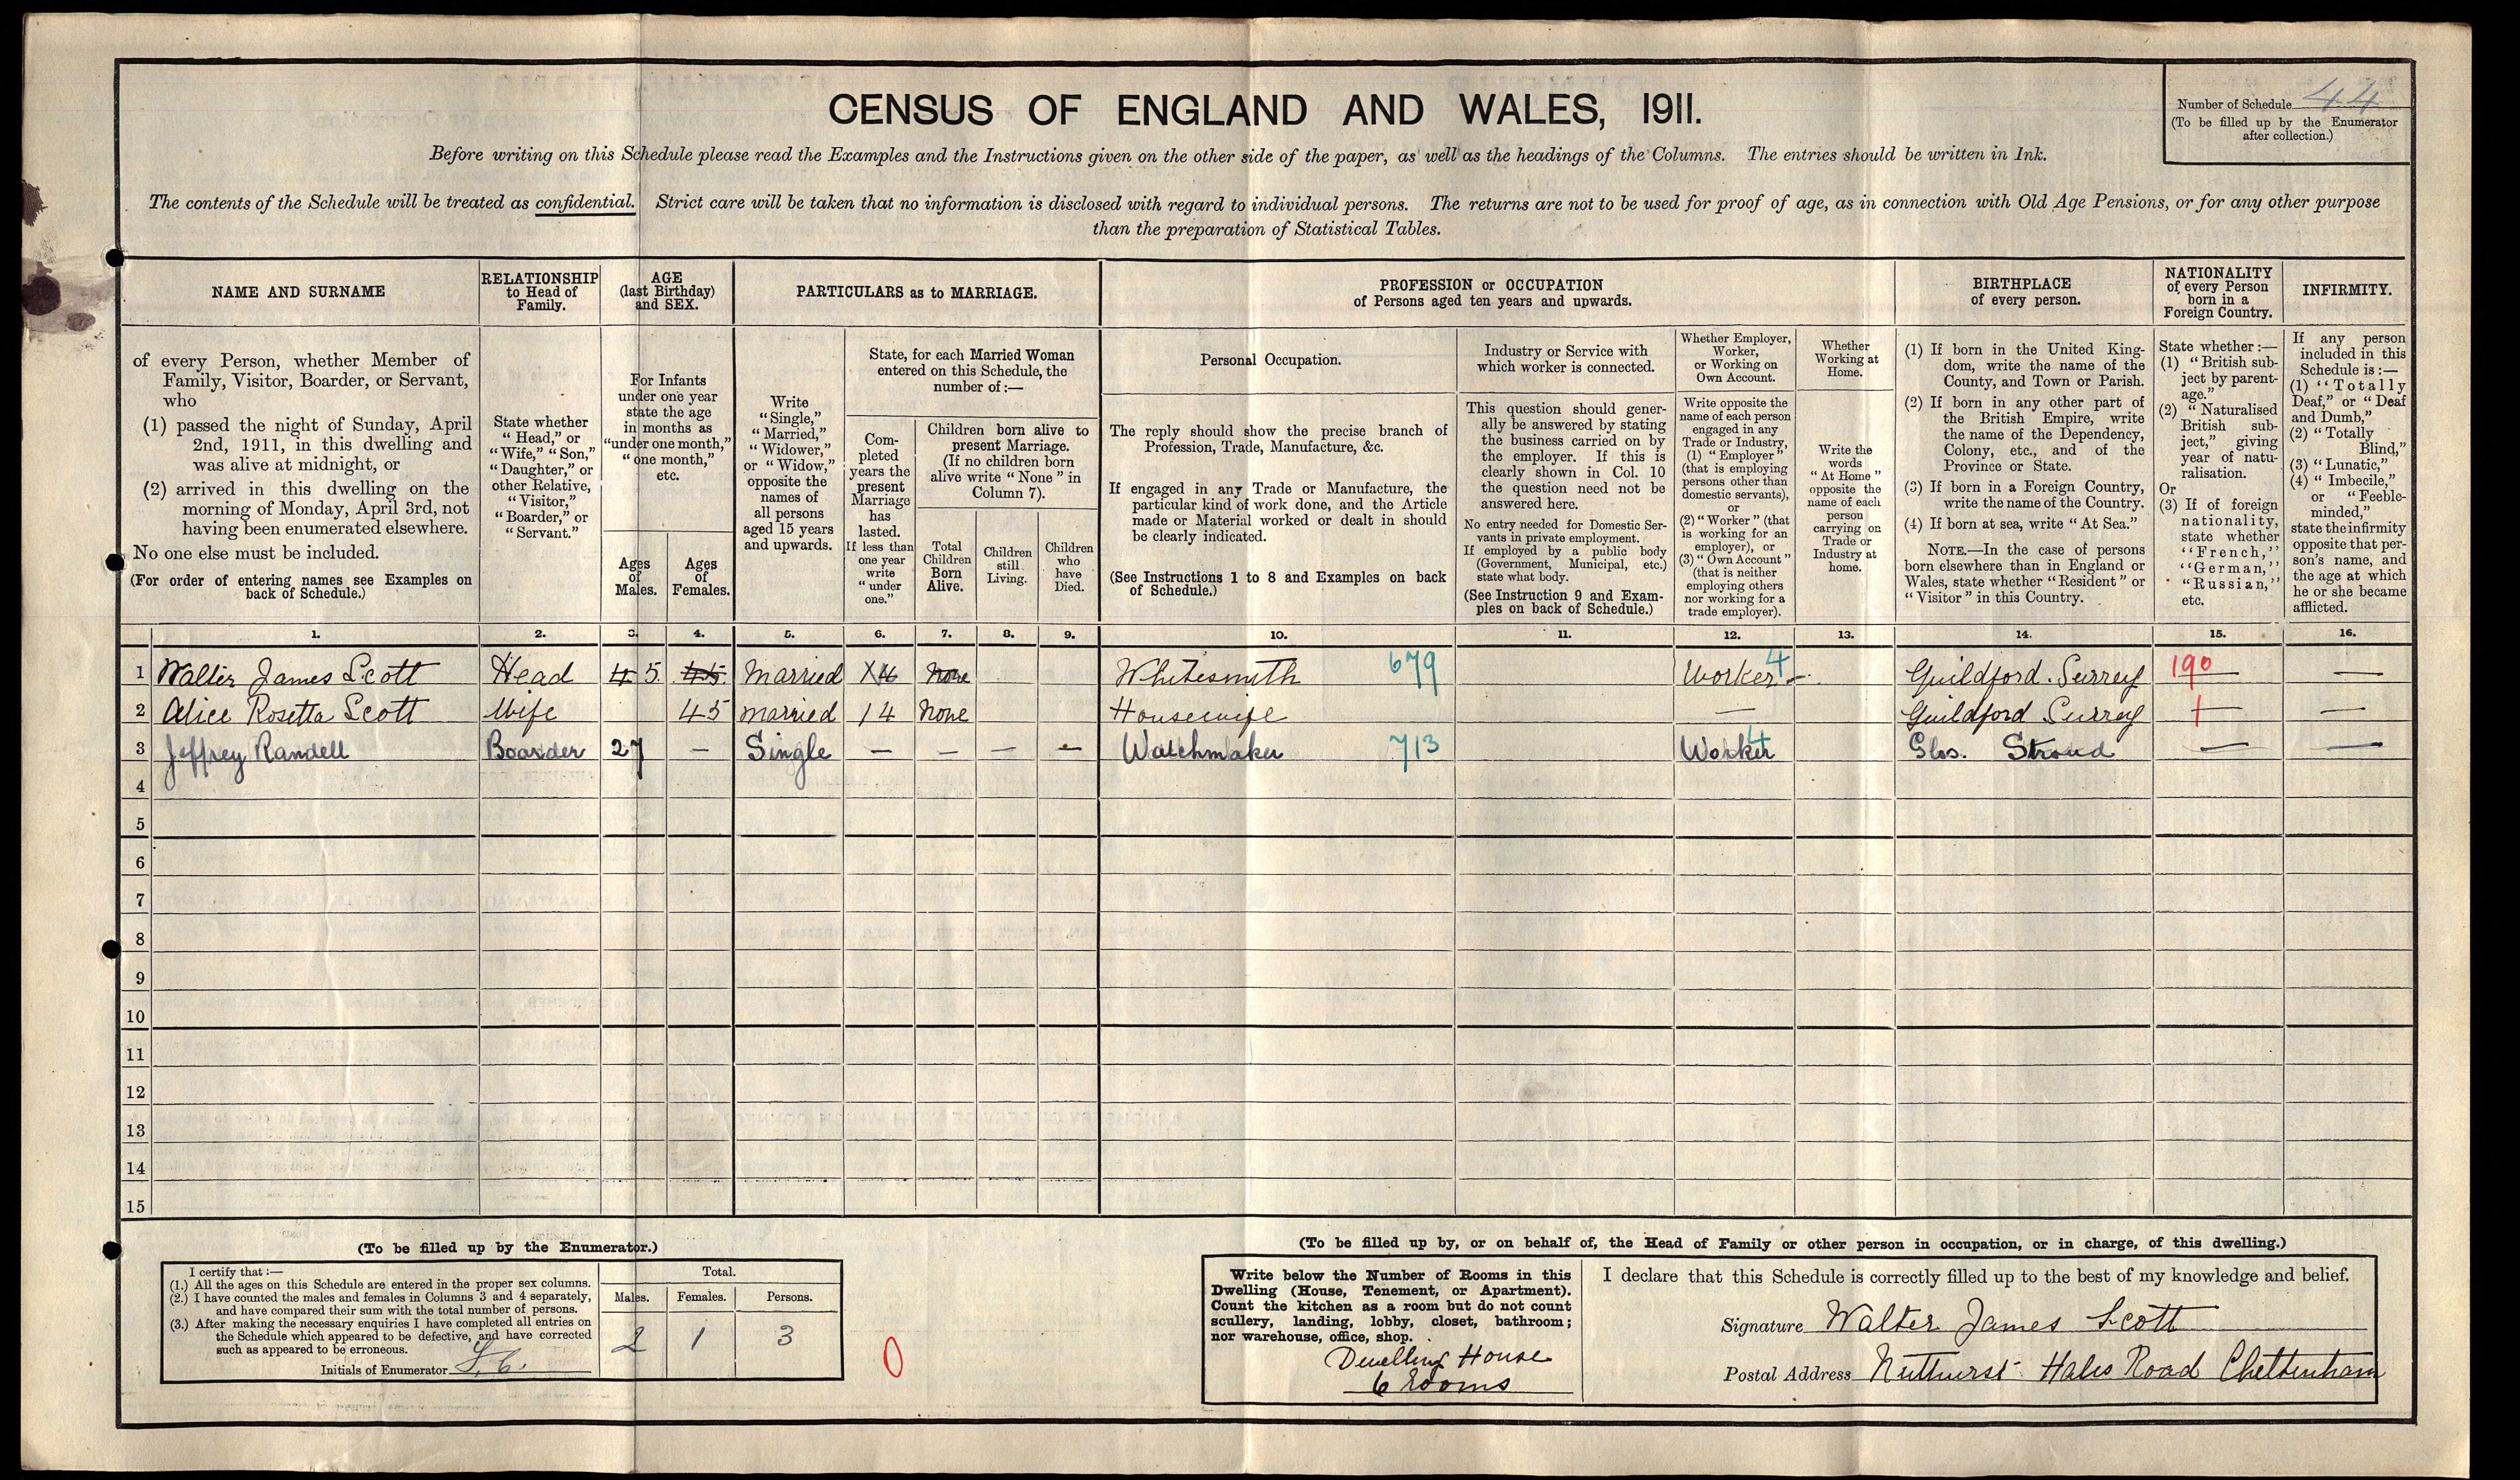 CENSUS OF ENGLAND AND WALES, 1911.
Number of Schedule 44
(To be filled up by the Enumerator
after collection.)
Before writing on this Schedule please read the Examples and the Instructions given on the other side of the paper, as well as the headings of the Columns. The entries should be written in Ink.
The contents of the Schedule will be treated as confidential. Strict care will be taken that no information is disclosed with regard to individual persons. The returns are not to be used for proof of age, as in connection with Old Age Pensions, or for any other purpose
than the preparation of Statistical Tables.
NAME AND SURNAME
of every Person, whether Member of
Family, Visitor, Boarder, or Servant,
who
(1) passed the night of Sunday, April
2nd, 1911, in this dwelling and
was alive at midnight, or
(2) arrived in this dwelling on the
morning of Monday, April 3rd, not
having been enumerated elsewhere.
No one else must be included.
(For order of entering names see Examples on
back of Schedule.)
RELATIONSHIP
to Head of
Family.
State whether
"Head," or
"Wife," "Son,"
"Daughter," or
other Relative,
"Visitor,"
"Boarder," or
"Servant."
AGE
(last Birthday)
and SEX.
For Infants
under one year
state the age
in months as
"under one month,"
"one month,"
etc.
Ages
of
Males.
Ages
of
Females.
PARTICULARS as to MARRIAGE.
Write
"Single,"
"Married,"
"Widower,"
or "Widow,"
opposite the
names of
all persons
aged 15 years
and upwards.
State, for each Married Woman
entered on this Schedule, the
number of:—
Com-
pleted
years the
present
Marriage
has
lasted.
If less than
one year
write
"under
one."
Children born alive to
present Marriage.
(If no children born
alive write "None" in
Column 7).
Total
Children
Born
Alive.
Children
still
Living.
Children
who
have
Died.
PROFESSION or OCCUPATION
of Persons aged ten years and upwards.
Personal Occupation.
The reply should show the precise branch of
Profession, Trade, Manufacture, &c.
If engaged in any Trade or Manufacture, the
particular kind of work done, and the Article
made or Material worked or dealt in should
be clearly indicated.
(See Instructions 1 to 8 and Examples on back
of Schedule.)
Industry or Service with
which worker is connected.
This question should gener-
ally be answered by stating
the business carried on by
the employer. If this is
clearly shown in Col. 10
the question need not be
answered here.
No entry needed for Domestic Ser-
vants in private employment.
If employed by a public body
(Government, Municipal, etc.)
state what body.
(See Instruction 9 and Exam-
ples on back of Schedule.)
Whether Employer,
Worker,
or Working on
Own Account.
Write opposite the
name of each person
engaged in any
Trade or Industry,
(1) "Employer"
(that is employing
persons other than
domestic servants),
or
(2) "Worker" (that
is working for an
employer), or
(3) "Own Account"
(that is neither
employing others
nor working for a
trade employer).
Whether
Working at
Home.
Write the
words
"At Home"
opposite the
name of each
person
carrying on
Trade or
Industry at
home.
BIRTHPLACE
of every person.
(1) If born in the United King-
dom, write the name of the
County, and Town or Parish.
(2) If born in any other part of
the British Empire, write
the name of the Dependency,
Colony, etc., and of the
Province or State.
(3) If born in a Foreign Country,
write the name of the Country.
(4) If born at sea, write "At Sea."
NOTE.—In the case of persons
born elsewhere than in England or
Wales, state whether "Resident" or
"Visitor" in this Country.
NATIONALITY
of every Person
born in a
Foreign Country.
State whether:—
(1) "British sub-
ject by parent-
age."
(2) "Naturalised
British sub-
ject," giving
year of natu-
ralisation.
Or
(3) If of foreign
nationality,
state whether
"French,"
"German,"
"Russian,"
etc.
INFIRMITY.
If any person
included in this
Schedule is:—
(1) "Totally
Deaf," or "Deaf
and Dumb,"
(2) "Totally
Blind,"
(3) "Lunatic,"
(4) "Imbecile,"
or "Feeble-
minded,"
state the infirmity
opposite that per-
son's name, and
the age at which
he or she became
afflicted.
1. 2. 3. 4. 5. 6. 7. 8. 9. 10. 11. 12. 13. 14. 15. 16.
1 Walter James Scott Head 45 45 Married None Whitesmith 679 Worker 4 — Guildford. Surrey 190 — —
2 Alice Rosetta Scott Wife 45 Married 14 None Housewife — Guildford Surrey 1 — —
3 Jeffrey Randell Boarder 27 — Single — — — — Watchmaker 713 Worker 4 Glos. Stroud — —
4
5
6
7
8
9
10
11
12
13
14
15
(To be filled up by the Enumerator.)
I certify that:—
(1.) All the ages on this Schedule are entered in the proper sex columns.
(2.) I have counted the males and females in Columns 3 and 4 separately,
and have compared their sum with the total number of persons.
(3.) After making the necessary enquiries I have completed all entries on
the Schedule which appeared to be defective, and have corrected
such as appeared to be erroneous.
Initials of Enumerator
Total.
Males. Females. Persons.
2 1 3
0
(To be filled up by, or on behalf of, the Head of Family or other person in occupation, or in charge, of this dwelling.)
Write below the Number of Rooms in this
Dwelling (House, Tenement, or Apartment).
Count the kitchen as a room but do not count
scullery, landing, lobby, closet, bathroom;
nor warehouse, office, shop.
Dwelling House
6 Rooms
I declare that this Schedule is correctly filled up to the best of my knowledge and belief.
Signature Walter James Scott
Postal Address Nuthurst Hales Road Cheltenham